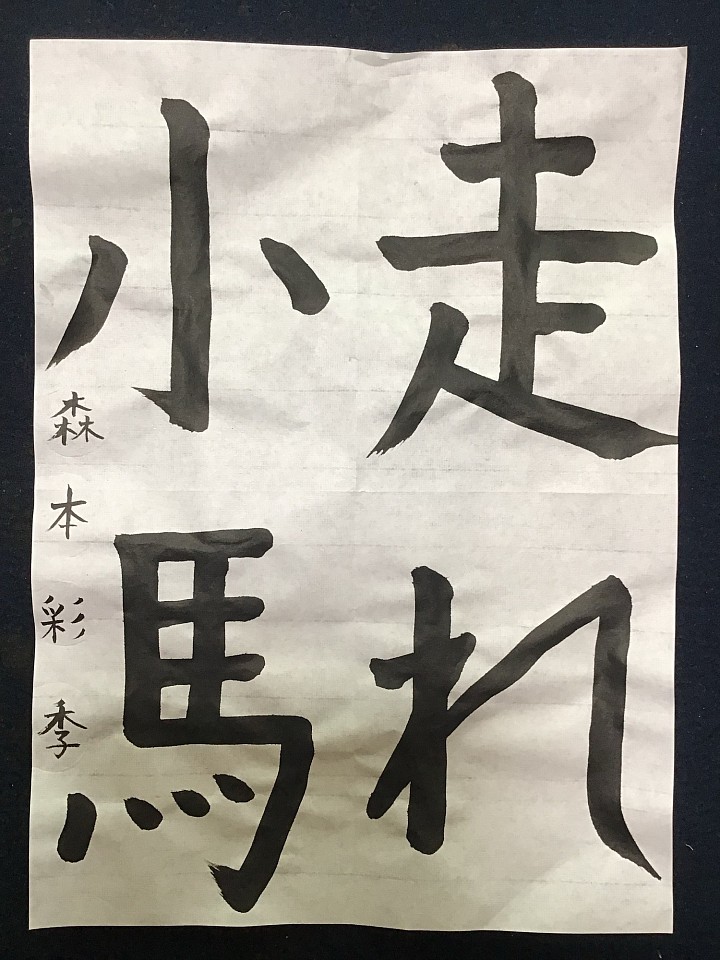 走れ
小馬
森本彩季